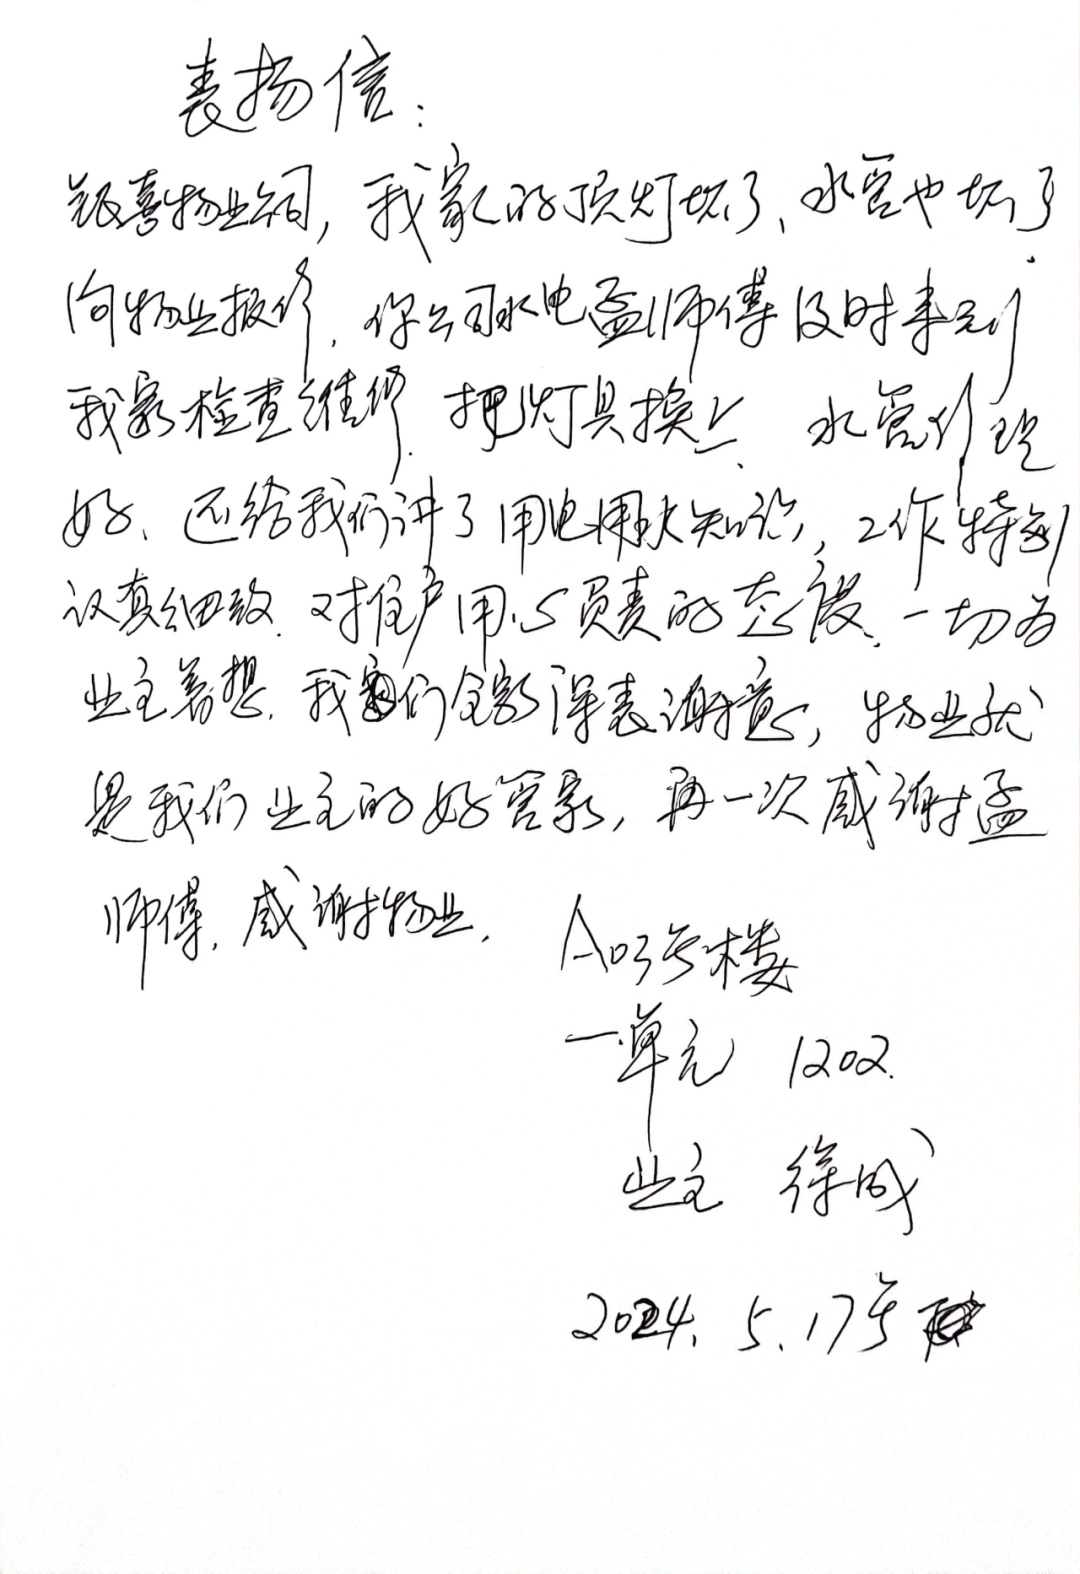 表扬信:
银喜物业公司，我家的顶灯坏了、水管也坏了.
向物业报修，你公司水电孟师傅及时来到
我家检查维修. 把灯具换上、水管修理
好、还给我们讲了用电用火知识，工作特别
认真细致. 对住户用心负责的态度. 一切为
业主着想. 我们全家深表谢意，物业就
是我们业主的好管家，再一次感谢孟
师傅. 感谢物业.
A03号楼
一单元 1202.
业主 徐成
2024. 5. 17号